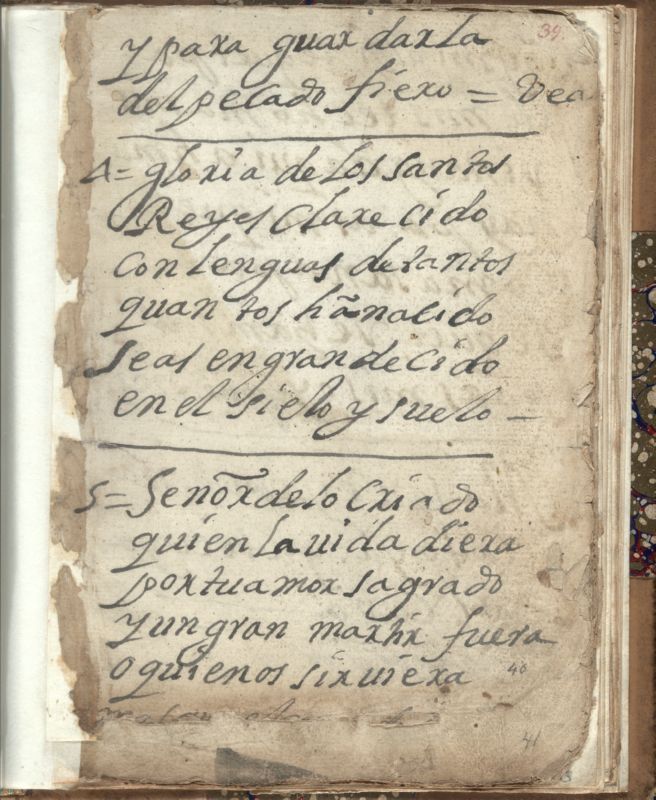 39.
y para guardarla
del pecado fiero = Vea
4= gloria de los santos
Reyes Clarecido
con lenguas de tantos
quantos hãnacido
seas engrandecido
en el sielo y suelo —
5= Señor de lo Criado
quien la uida diera
por tu amor sagrado
y un gran martir fuera
o quienos siruiera
40
41